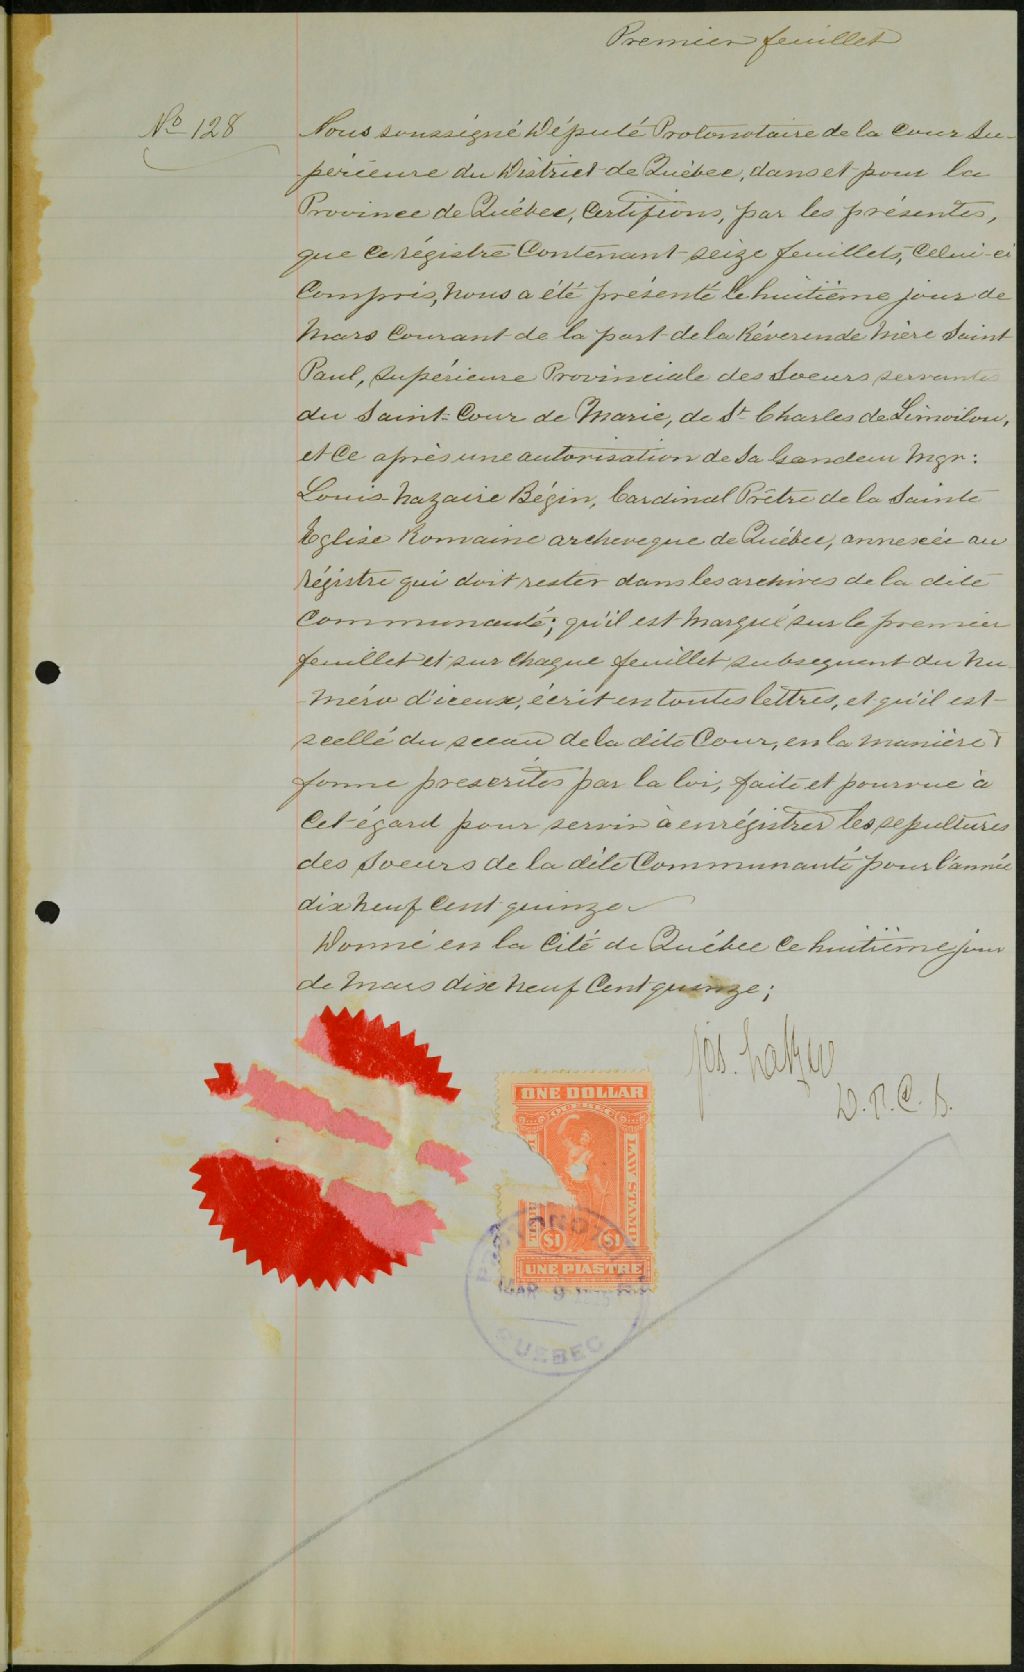 Premier feuillet
No 128
Nous soussigné Député Protonotaire de la Cour Su-
périeure du District de Québec, dans et pour la
Province de Québec, Certifions, par les présentes,
que ce régistre Contenant seize feuillets, Celui-ci
Compris, nous a été présenté le huitième jour de
Mars Courant de la part de la Réverende Mère Saint
Paul, Supérieure Provinciale des Soeurs servantes
du Saint-Coeur de Marie, de St Charles de Limoilou,
et ce après une autorisation de Sa Gandeur Mgr:
Louis-Nazaire Bégin, Cardinal Prêtre de la Sainte
Eglise Romaine archeveque de Québec, annexée au
régistre qui doit rester dans les archives de la dite
Communauté; qu'il est Marqué sur le premier
feuillet et sur Chaque feuillet subsequent du nu-
-méro d'iceux, écrit en toutes lettres, et qu'il est
scellé du sceau de la dite Cour, en la manière &
forme prescrites par la loi, faite et pourvue à
cet égard pour servir à enrégistrer les sepultures
des Soeurs de la dite Communauté pour l'année
dix neuf Cent quinze
Donné en la Cité de Québec ce huitième jour
de Mars dix neuf Cent quinze;
Jos.
D.P.C.S.
ONE DOLLAR
LAW STAMP
$1 $1
UNE PIASTRE
MAR 9
QUEBEC